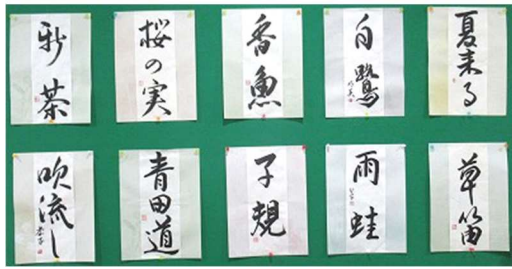 新茶
桜の実
香魚
白鷺
夏来る
吹流し
青田道
子規
雨蛙
草笛